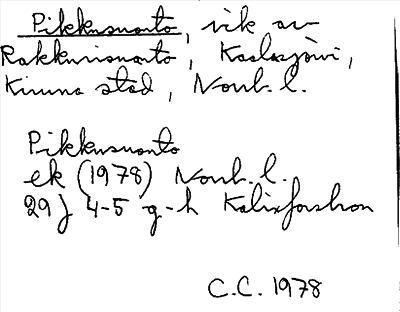 Pikkusuanto, vik av
Rakkurisuanto, Kaalasjärvi,
Kiruna stad, Norrb. l.
Pikkusuanto
ek (1978) Norrb. l.
29J 4-5 g-h Kalixforsbron
C.C. 1978